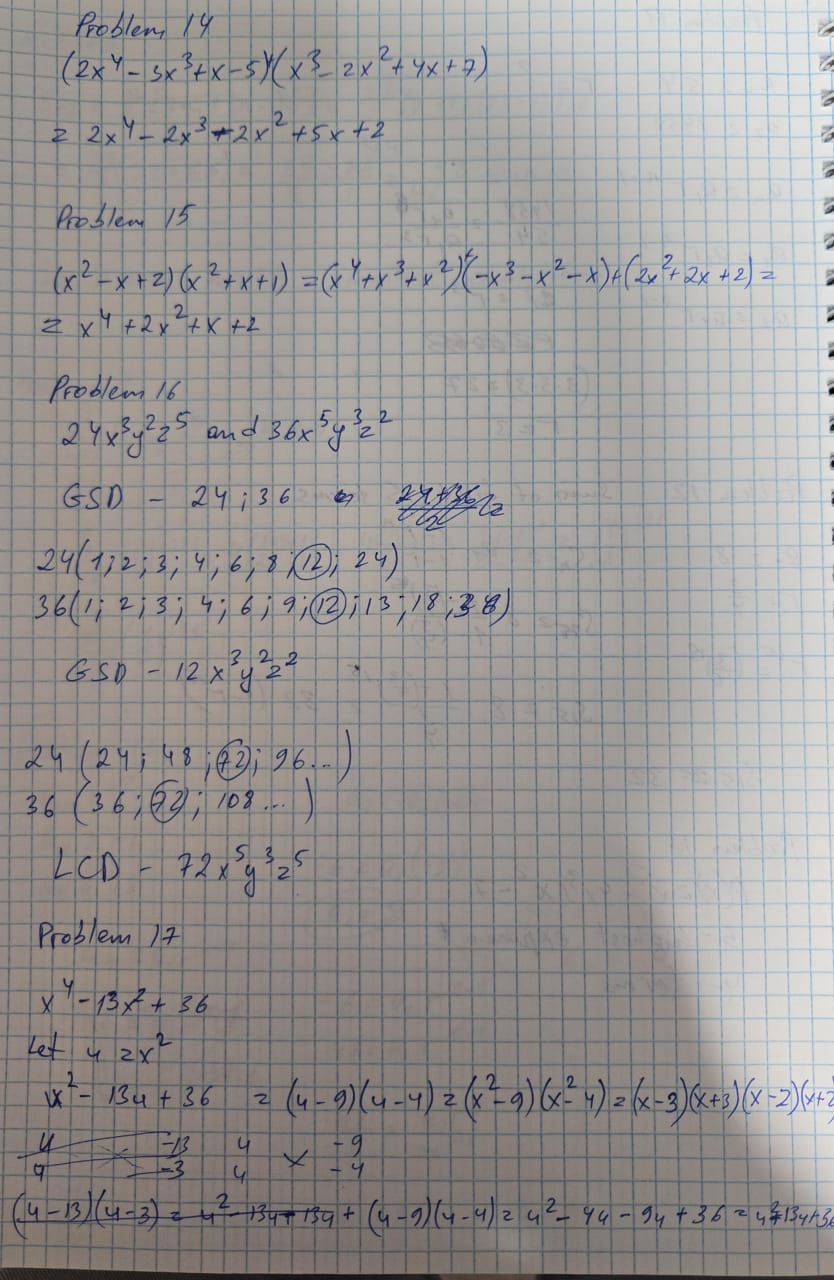 Problem 14
(2x⁴ - 3x³ + x - 5) + (x³ - 2x² + 4x + 7)
= 2x⁴ - 2x³ - 2x² + 5x + 2
Problem 15
(x² - x + 2)(x² + x + 1) = (x⁴ + x³ + x²) + (-x³ - x² - x) + (2x² + 2x + 2) =
= x⁴ + 2x² + x + 2
Problem 16
24x³y²z⁵ and 36x⁵y³z²
GSD - 24; 36
24(1; 2; 3; 4; 6; 8; 12; 24)
36(1; 2; 3; 4; 6; 9; 12; 13; 18; 38)
GSD - 12x³y²z²
24 (24; 48; 72; 96...)
36 (36; 72; 108...)
LCD - 72x⁵y³z⁵
Problem 17
x⁴ - 13x² + 36
Let u = x²
u² - 13u + 36 = (u-9)(u-4) = (x²-9)(x²-4) = (x-3)(x+3)(x-2)(x+2
u -13 u × -9
u -3 u -4
(u-13)(u-3) = u² - 13u + 13u + (u-9)(u-4) = u² - 4u - 9u + 36 = u² - 13u + 36